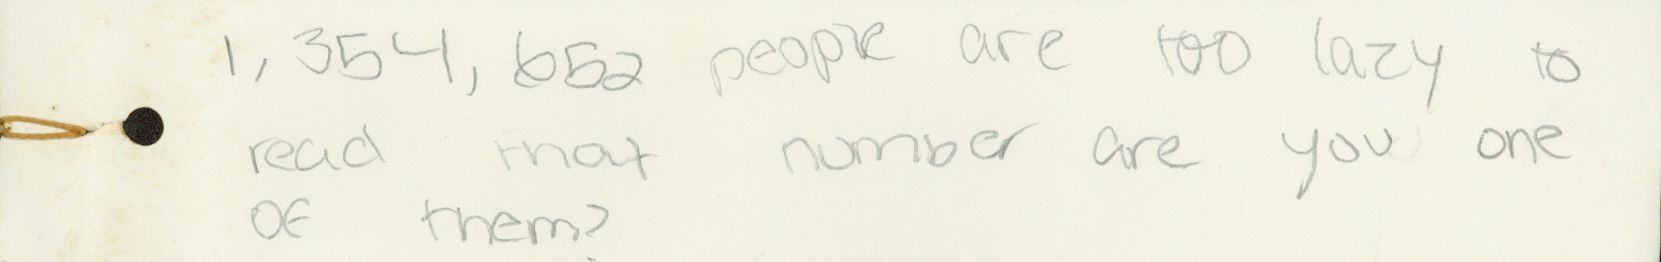 1,354,652 people are too lazy to
read that number are you one
of them?